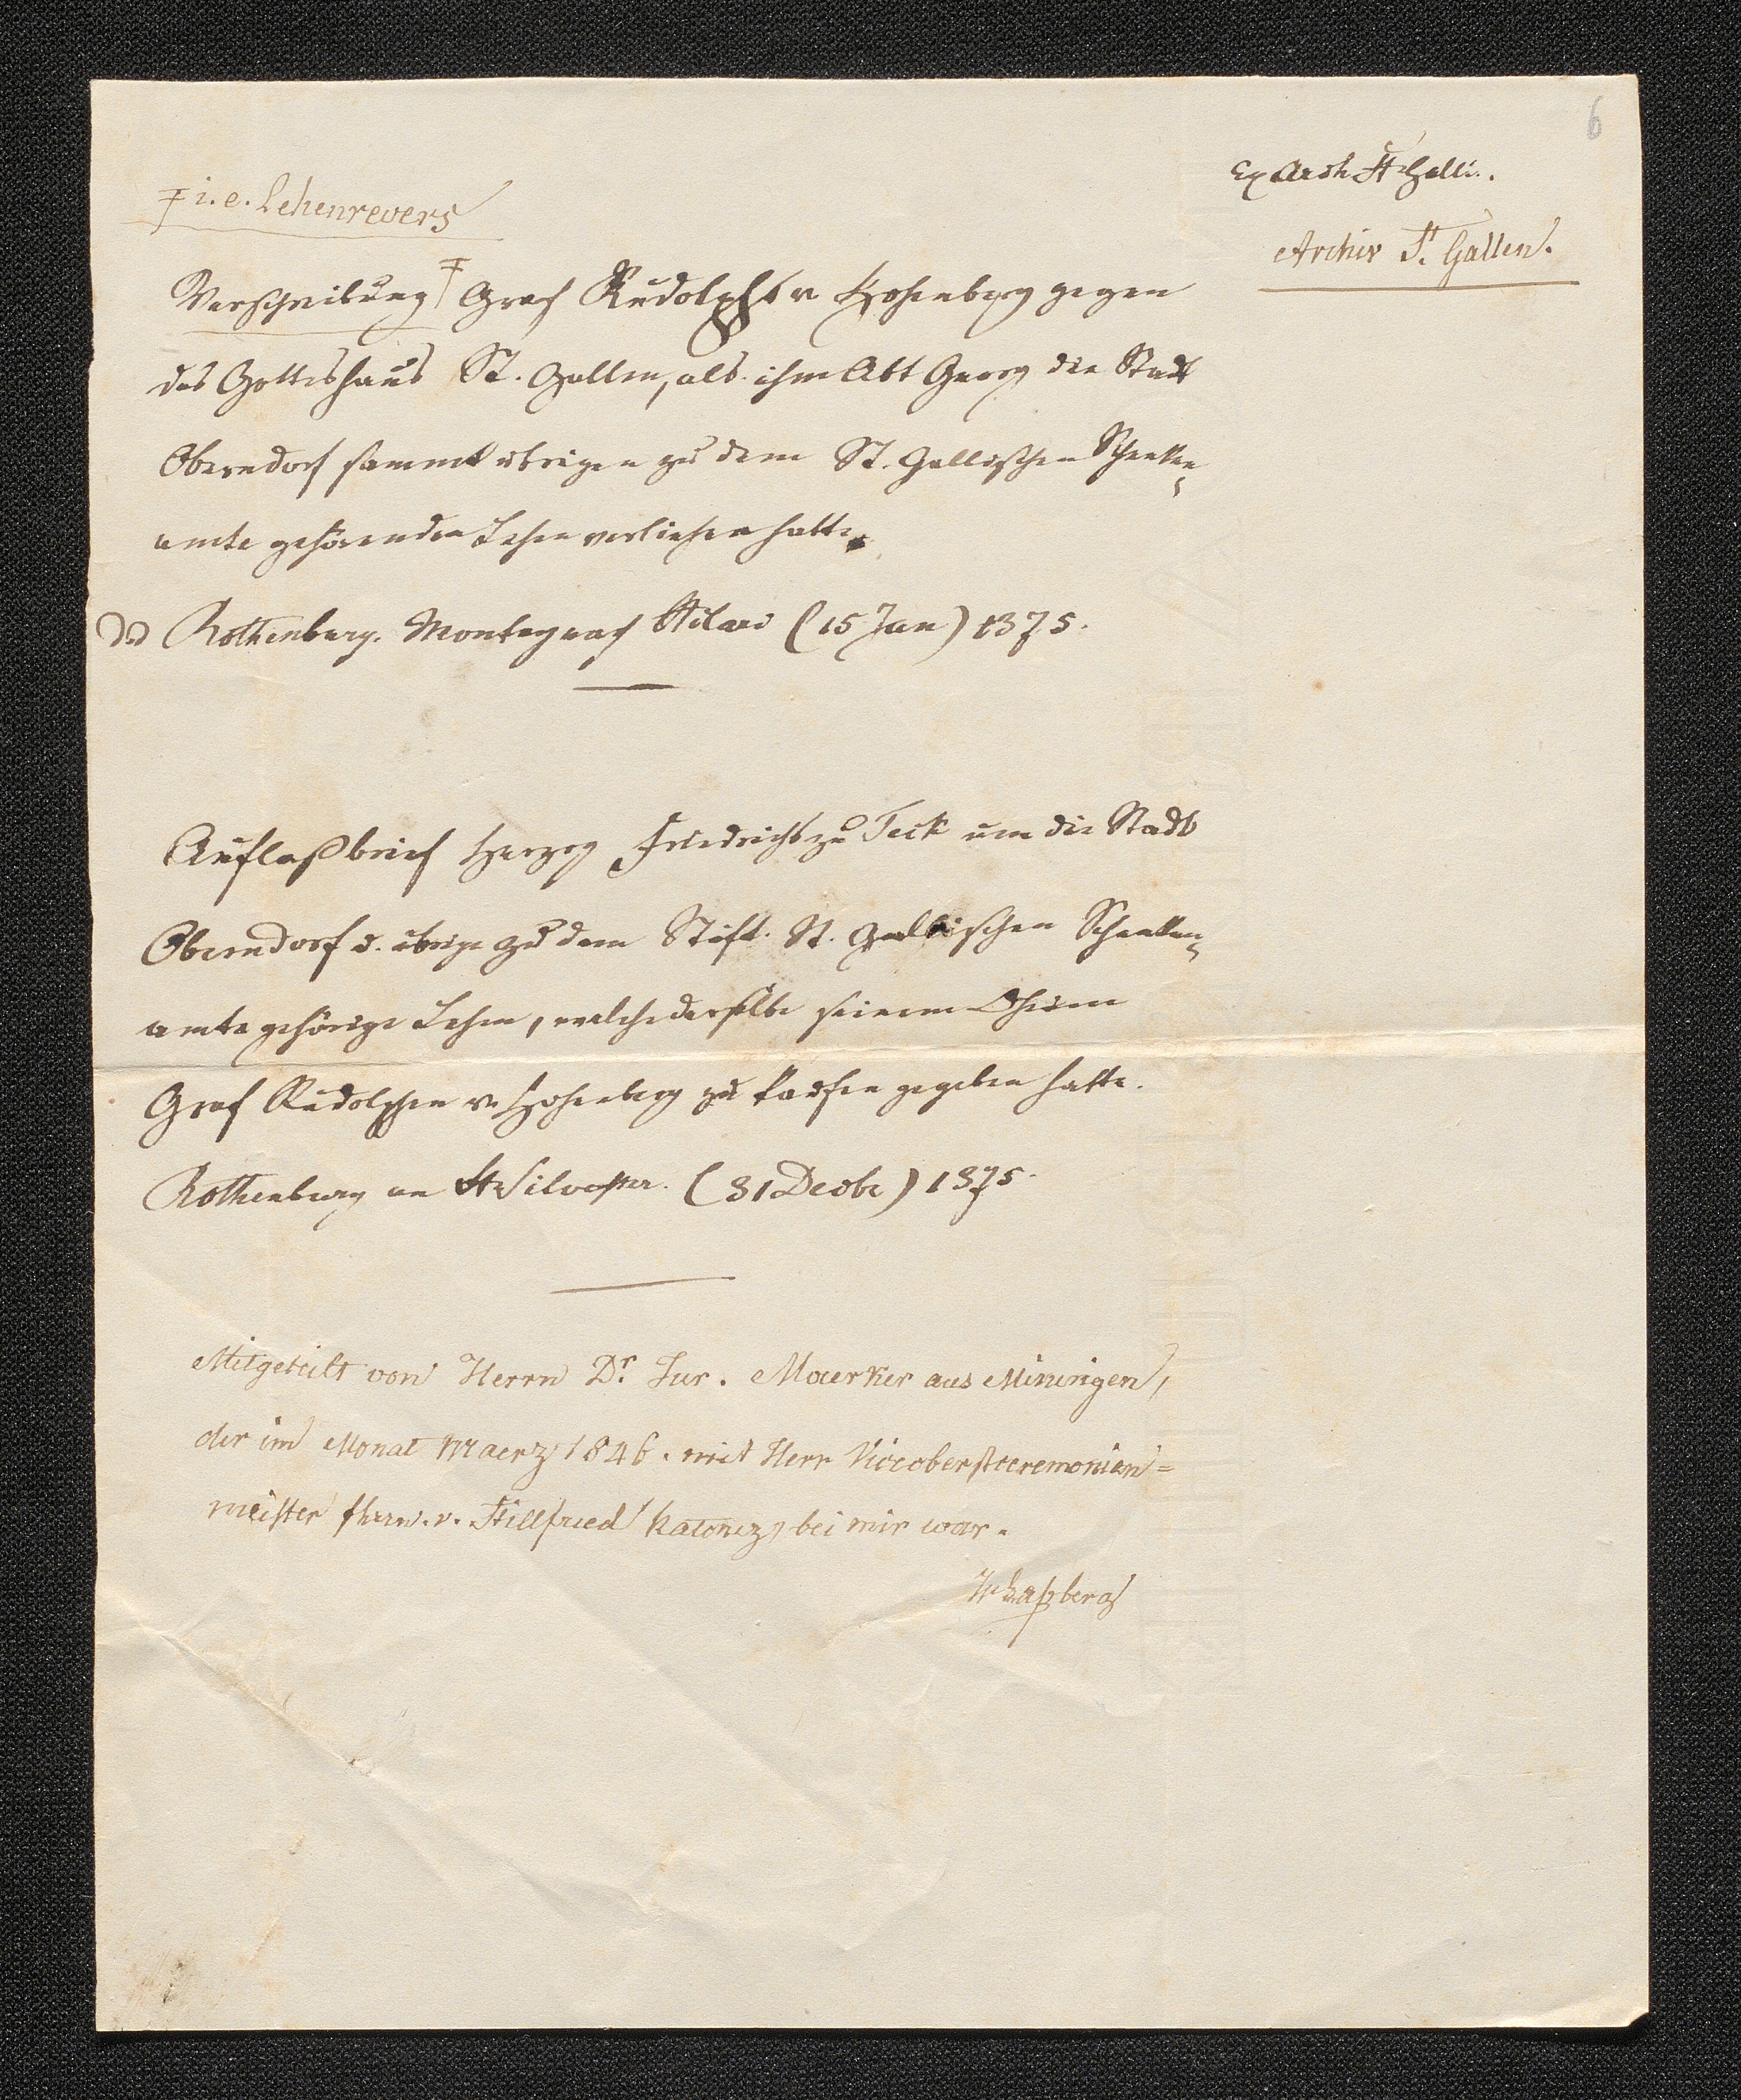 6
Ex Arch St Galli.
Archiv St. Gallen.
‡ i. e. Lehenrevers
Verschreibung ‡ Graf Rudolphs v Hohenberg gegen
das Gotteshaus St. Gallen, als ihm Abt Georg die Stadt
Oberndorf sammt übrigen zu dem St. Gallischen Schenken-
amte gehörenden Lehen verliehen hatte.
dd Rothenburg. Montag nach Hilari (15 Jan) 1375.
Auflaßbrief Herzog Friedrichs zu Teck um die Stadt
Oberndorf u. übrige zu dem Stift St. Gallischen Schenken-
amte gehörige Lehen, welche derselbe seinem Oheim
Graf Rudolphen v. Hohenberg zu kaufen gegeben hatte.
Rothenburg an St Silvester. (31 Decbr) 1375.
Mitgeteilt von Herrn Dr. Jur. Maerker aus Miningen,
der im Monat Maerz 1846. mit Herr Viceoberstceremonien=
meister fhrrn. v. Stillfried Ratonicz, bei mir war.
JvLaßberg